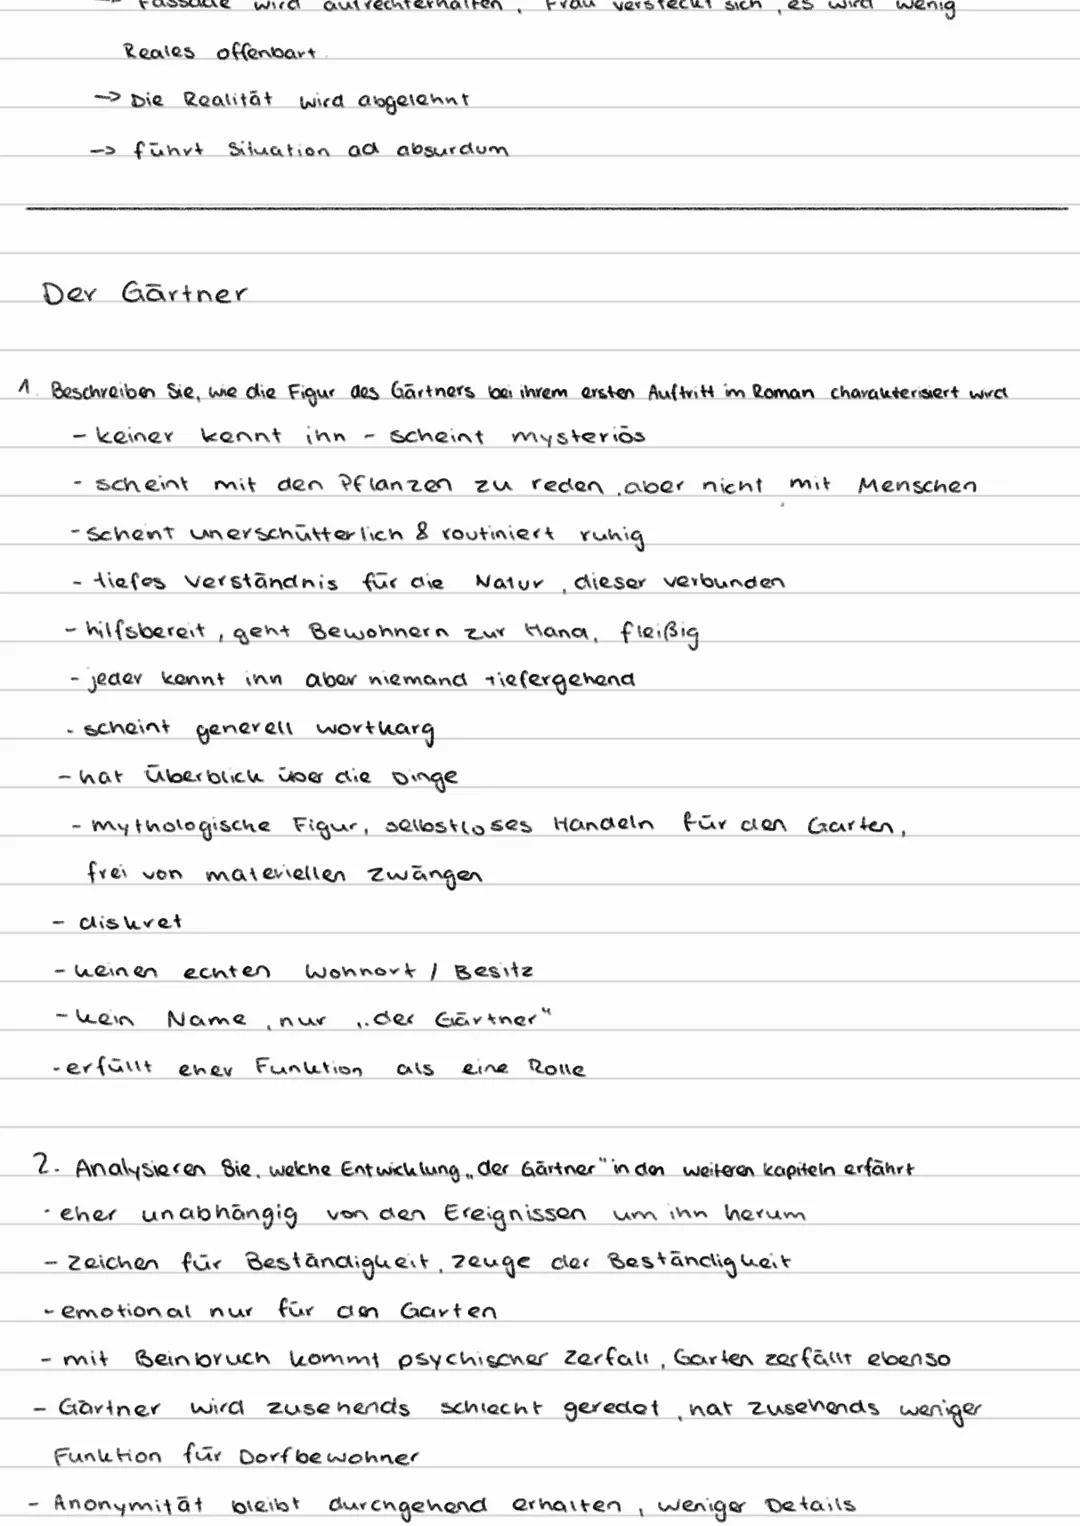 → Fassade wird aufrechterhalten, Frau versteckt sich, es wird wenig
Reales offenbart.
→ Die Realität wird abgelehnt
→ führt Situation ad absurdum
Der Gärtner
1. Beschreiben Sie, wie die Figur des Gärtners bei ihrem ersten Auftritt im Roman charakterisiert wird
- keiner kennt ihn - scheint mysteriös
- scheint mit den Pflanzen zu reden, aber nicht mit Menschen
- scheint unerschütterlich & routiniert ruhig
- tiefes Verständnis für die Natur, dieser verbunden
- hilfsbereit, geht Bewohnern zur Hand, fleißig
- jeder kennt ihn aber niemand tiefergehend
- scheint generell wortkarg
- hat Überblick über die Dinge
- mythologische Figur, selbstloses Handeln für den Garten,
frei von materiellen Zwängen
- diskret
- keinen echten Wohnort / Besitz
- kein Name, nur „der Gärtner"
- erfüllt eher Funktion als eine Rolle
2. Analysieren Sie, welche Entwicklung „der Gärtner" in den weiteren Kapiteln erfährt
- eher unabhängig von den Ereignissen um ihn herum
- Zeichen für Beständigkeit, Zeuge der Beständigkeit
- emotional nur für den Garten
- mit Beinbruch kommt psychischer Zerfall, Garten zerfällt ebenso
- Gärtner wird zusehends schlecht geredet, hat zusehends weniger
Funktion für Dorfbewohner
- Anonymität bleibt durchgehend erhalten, weniger Details